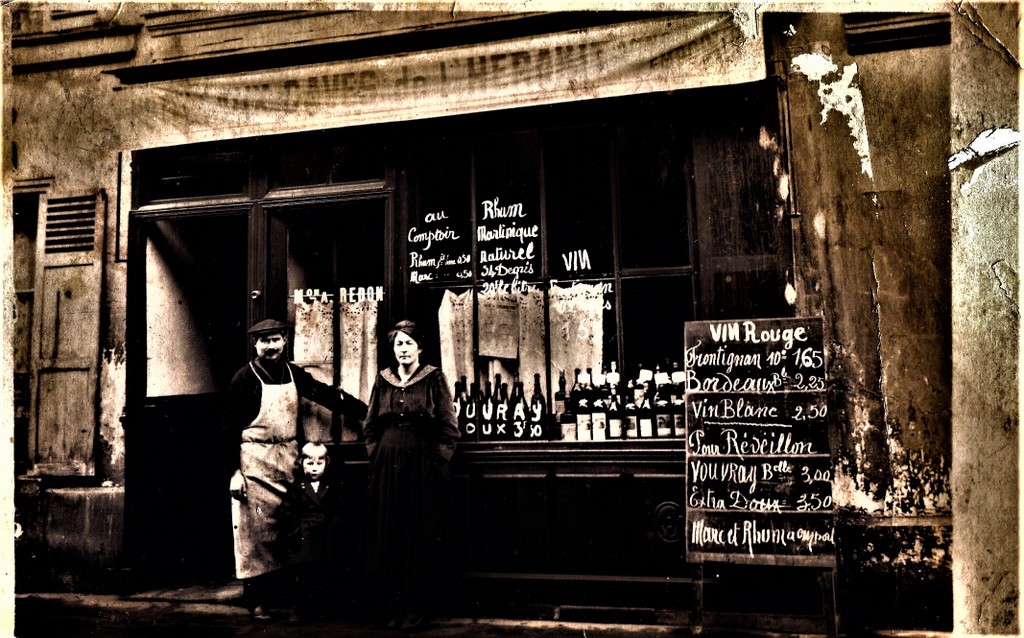 CAVES de L'HERAULT
au
Comptoir
Rhum
Marc
Rhum
Martinique
naturel
54 Degrés
le litre
VIN
Mon A. REDON
VOUVRAY
DOUX 3f50
VIN Rouge
Frontignan 10° 1,65
Bordeaux Blle 2,25
Vin Blanc 2,50
Pour Réveillon
VOUVRAY Blle 3,00
Extra Doux 3,50
Marc et Rhum a emport